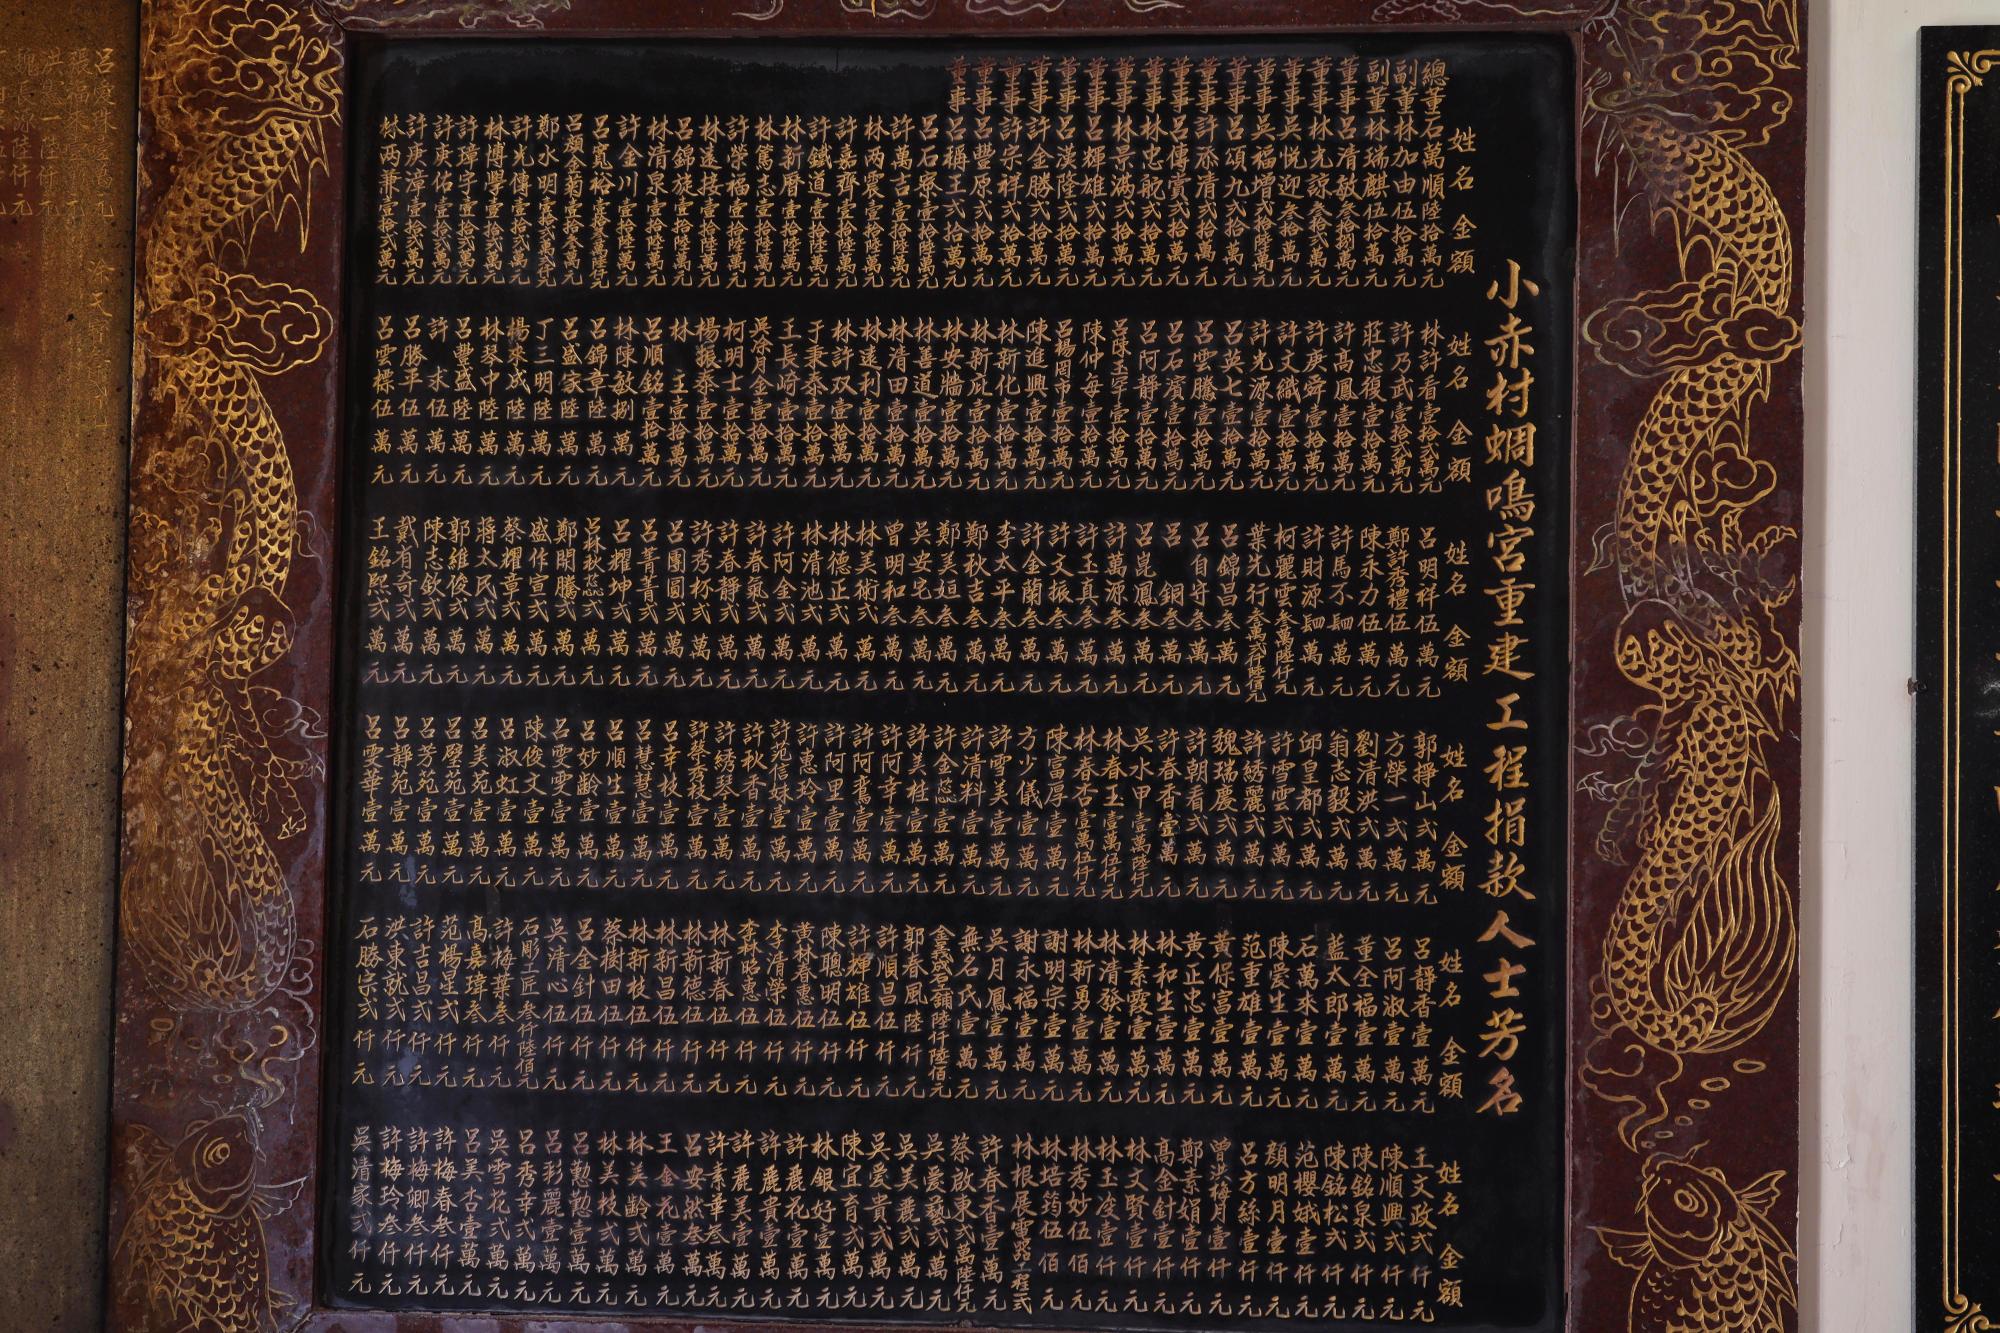 小赤村蜩鳴宮重建工程捐款人士芳名
姓名 金額
總董 石萬順 陸拾萬元
副董 林加由 伍拾萬元
副董 林瑞麒 伍拾萬元
董事 呂清敏 叁拾捌萬元
董事 林光諒 叁拾弍萬元
董事 吳悅迎 叁拾萬元
董事 吳福增 弍拾陸萬元
董事 呂頌九 弍拾萬元
董事 許添清 弍拾萬元
董事 呂傳賞 弍拾萬元
董事 林忠舵 弍拾萬元
董事 林景滿 弍拾萬元
董事 呂輝雄 弍拾萬元
董事 呂漢隆 弍拾萬元
董事 許金勝 弍拾萬元
董事 許宗祥 弍拾萬元
董事 呂豐原 弍拾萬元
董事 呂稱王 弍拾萬元
呂石寮 壹拾陸萬元
許萬吉 壹拾陸萬元
林丙震 壹拾陸萬元
許嘉齊 壹拾陸萬元
許鐵道 壹拾陸萬元
林新曆 壹拾陸萬元
林篤志 壹拾陸萬元
許榮福 壹拾陸萬元
林遠接 壹拾陸萬元
呂錦旋 壹拾陸萬元
林清泉 壹拾陸萬元
許金川 壹拾陸萬元
呂顏金菊 壹拾叁萬元
許光傳 壹拾弍萬元
林博學 壹拾弍萬元
許璋宇 壹拾弍萬元
許庚佑 壹拾弍萬元
許庚漳 壹拾弍萬元
林两兼 壹拾弍萬元
姓名 金額
林許看 壹拾弍萬元
許乃武 壹拾弍萬元
莊忠復 壹拾萬元
許高鳳 壹拾萬元
許庚舜 壹拾萬元
許文纖 壹拾萬元
許光源 壹拾萬元
呂英七 壹拾萬元
呂雲騰 壹拾萬元
呂石濱 壹拾萬元
呂阿靜 壹拾萬元
呂陳玉罕 壹拾萬元
陳仲每 壹拾萬元
呂楊罔市 壹拾萬元
陳進興 壹拾萬元
林新化 壹拾萬元
林新庇 壹拾萬元
林安牆 壹拾萬元
林善道 壹拾萬元
林清田 壹拾萬元
林遠利 壹拾萬元
林許双 壹拾萬元
于秉泰 壹拾萬元
王長崎 壹拾萬元
吳徐月金 壹拾萬元
柯明士 壹拾萬元
楊振泰 壹拾萬元
林王 壹拾萬元
呂順銘 壹拾萬元
林陳敏 捌萬元
呂錦章 陸萬元
呂盛家 陸萬元
丁三明 陸萬元
楊來成 陸萬元
林琴中 陸萬元
呂豐盛 陸萬元
許求 伍萬元
呂勝平 伍萬元
呂雲標 伍萬元
姓名 金額
呂明祥 伍萬元
鄭許秀禮 伍萬元
陳永力 伍萬元
許馬不 肆萬元
許財源 肆萬元
柯麗雲 叁萬陸仟元
葉先行 叁萬弍仟陸佰元
呂錦昌 叁萬元
呂自守 叁萬元
呂銅 叁萬元
呂崑鳳 叁萬元
許萬源 叁萬元
許玉真 叁萬元
許文振 叁萬元
許金蘭 叁萬元
李太平 叁萬元
鄭秋吉 叁萬元
鄭美姮 叁萬元
吳安宅 叁萬元
曾明和 叁萬元
林美術 弍萬元
林德正 弍萬元
林清池 弍萬元
許阿金 弍萬元
許春氣 弍萬元
許春靜 弍萬元
許秀杯 弍萬元
呂團圓 弍萬元
呂菁菁 弍萬元
呂耀坤 弍萬元
呂林秋蕊 弍萬元
鄭開騰 弍萬元
盛作宣 弍萬元
蔡耀章 弍萬元
蔣太民 弍萬元
郭維俊 弍萬元
陳志欽 弍萬元
戴有奇 弍萬元
王銘熙 弍萬元
姓名 金額
郭掙山 弍萬元
方榮一 弍萬元
劉清洪 弍萬元
翁志毅 弍萬元
邱皇都 弍萬元
許雪雲 弍萬元
許綉麗 弍萬元
魏瑞慶 弍萬元
許朝看 弍萬元
許春香 壹萬元
吳水甲 壹萬陸仟元
林春玉 壹萬伍仟元
林春杏 壹萬伍仟元
陳富厚 壹萬元
方少儀 壹萬元
許雪美 壹萬元
許清料 壹萬元
許金蕊 壹萬元
許美桂 壹萬元
許阿幸 壹萬元
許阿鴦 壹萬元
許阿里 壹萬元
許惠玲 壹萬元
許苑信妹 壹萬元
許秋香 壹萬元
許綉琴 壹萬元
許蔡秀枝 壹萬元
呂幸枝 壹萬元
呂慧慧 壹萬元
呂順生 壹萬元
呂妙齡 壹萬元
呂雯雯 壹萬元
陳俊文 壹萬元
呂淑虹 壹萬元
呂美苑 壹萬元
呂壁苑 壹萬元
呂芳苑 壹萬元
呂靜苑 壹萬元
呂雯華 壹萬元
姓名 金額
呂靜香 壹萬元
呂阿淑 壹萬元
董全福 壹萬元
藍太郎 壹萬元
石萬來 壹萬元
陳爱生 壹萬元
范重雄 壹萬元
黃保富 壹萬元
黃正忠 壹萬元
林和生 壹萬元
林素霞 壹萬元
林清發 壹萬元
林新勇 壹萬元
謝明宗 壹萬元
謝永福 壹萬元
吳月鳳 壹萬元
無名氏 壹萬元
金義成名鋪 陸仟陸佰元
郭春風 陸仟元
許順昌 伍仟元
許輝雄 伍仟元
陳聰明 伍仟元
黃林春惠 伍仟元
李清榮 伍仟元
李林昭惠 伍仟元
林新春 伍仟元
林新德 伍仟元
林新昌 伍仟元
林新枝 伍仟元
蔡樹田 伍仟元
呂金針 伍仟元
吳清心 伍仟元
石彫工匠 叁仟陸佰元
許梅葉 叁仟元
高嘉瑋 叁仟元
范楊星 弍仟元
許吉昌 弍仟元
洪東就 弍仟元
石勝宗 弍仟元
姓名 金額
王文政 弍仟元
陳順興 弍仟元
陳銘泉 弍仟元
陳銘松 弍仟元
范櫻娥 壹仟元
顏明月 壹仟元
呂方絲 壹仟元
曾洪梅月 壹仟元
鄭素娟 壹仟元
高金針 壹仟元
林文賢 壹仟元
林玉凌 壹仟元
林秀妙 伍佰元
林培筠 伍佰元
許春香 壹萬元
蔡啟東 弍萬陸仟元
吳爱藝 弍萬元
吳美麗 弍萬元
吳爱貴 弍萬元
陳宜育 弍萬元
林銀好 壹萬元
許麗花 壹萬元
許麗貴 壹萬元
許麗美 壹萬元
許素華 叁萬元
呂安然 叁萬元
王金花 壹萬元
林美齡 弍萬元
林美枝 弍萬元
呂懃懃 壹萬元
呂彩麗 壹萬元
呂秀幸 弍萬元
吳雪花 弍萬元
呂美杏 壹萬元
許梅春 叁仟元
許梅卿 叁仟元
許梅玲 叁仟元
吳清家 弍仟元